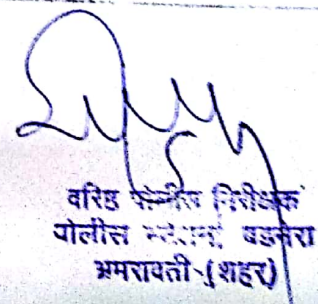 वरिष्ठ पोलीस निरीक्षक
पोलीस स्टेशन बडनेरा
अमरावती (शहर)